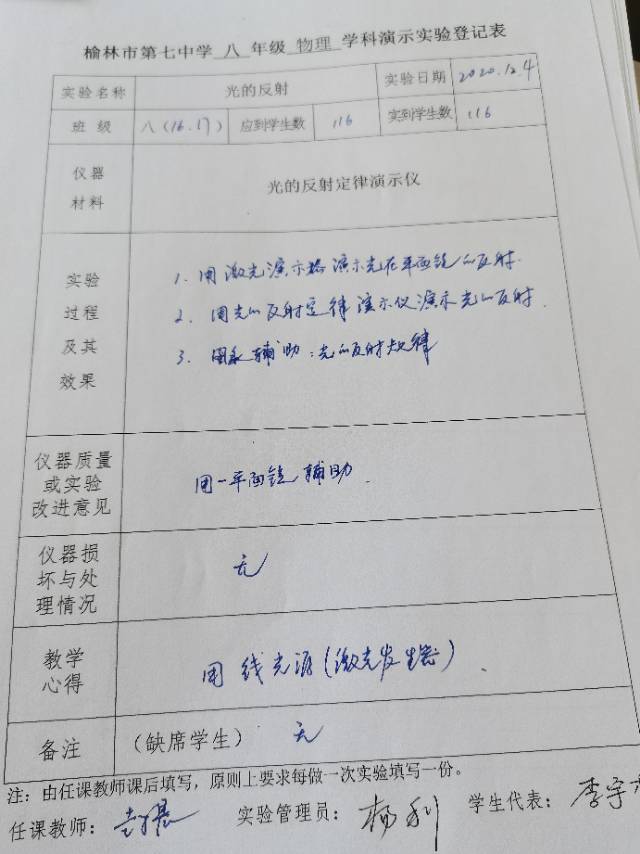 榆林市第七中学 八 年级 物理 学科演示实验登记表
实验名称 光的反射 实验日期 2020.12.4
班 级 八(16.17) 应到学生数 116 实到学生数 116
仪器
材料
光的反射定律演示仪
实验
过程
及其
效果
1. 用激光演示器演示光在平面镜的反射.
2. 用光的反射定律演示仪演示光的反射.
3. 辅助:光的反射规律
仪器质量
或实验
改进意见
用一平面镜辅助.
仪器损
坏与处
理情况
无
教学
心得
用线光源(激光发生器).
备注 (缺席学生) 无
注:由任课教师课后填写,原则上要求每做一次实验填写一份。
任课教师: 实验管理员:杨利 学生代表:李宇